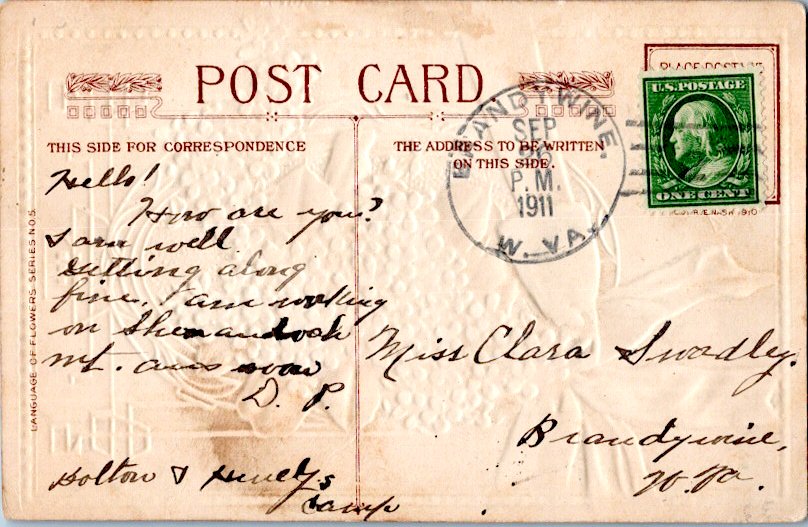 POST CARD
PLACE POSTAGE
U.S. POSTAGE
ONE CENT
BRANDYWINE,
SEP
P.M.
1911
W. VA.
THIS SIDE FOR CORRESPONDENCE
THE ADDRESS TO BE WRITTEN
ON THIS SIDE.
NASH 1910
LANGUAGE OF FLOWERS SERIES NO. 5.
Hello!
How are you?
I am well
getting along
fine. I am working
on Shenandoah
Mt. now
D. P.
Holton &
Camp
Miss Clara Swadley.
Brandywine,
W. Va.